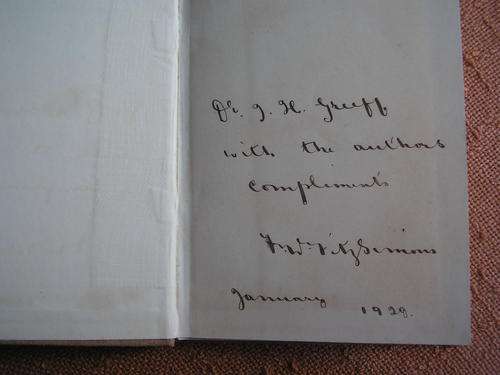 Dr. J. H. Greeff
with the authors
compliments
Fredk. FitzSimons
January 1929.